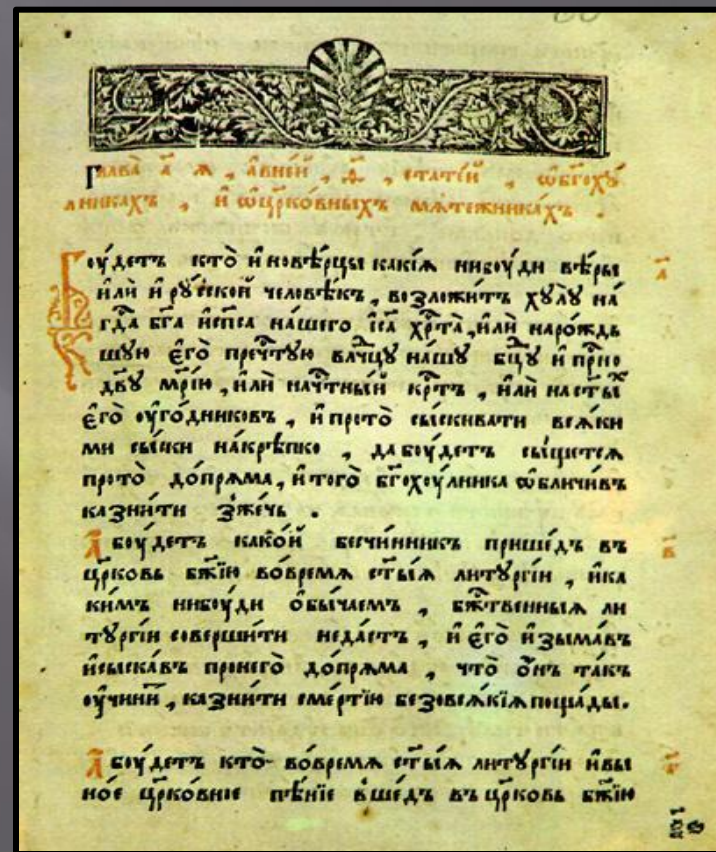 Глава̀ а҃ я , а в ней , д҃ , статїй , ѡ бг҃оху
лникахъ , и ѡ цр҃ковныхъ мятежникахъ .
Боу́детъ кто̀ иновѣ́рцы какі́я нибоу́ди вѣ́ры
и҆лѝ и҆ рꙋ́сской человѣ́къ , возложи́тъ хꙋлꙋ̀ на́
гд҇а бг҃а и҆ сп҃са на́шего і҆с҃а хр҇та̀ , и҆лѝ наро́ждь
шꙋю є҆го̀ преч҇тꙋю влⷣчцꙋ на́шꙋ бц҃ꙋ и҆ прⷭ҇но
дв҃ꙋ мр҃і́ю , и҆лѝ на ч҇тны́й кр҇тъ , и҆лѝ на ст҃ы́хъ
є҆го̀ оу҆го́дниковъ , и҆ про то̀ сы́скивати всѧ́ки
ми сы́ски на́крѣпко , да боу́детъ сы́щетсѧ
про то̀ до́прѧма , и҆ того̀ бг҃охоу́лника ѡ҆бличи́въ
казни́ти зже́чь .
А҆ боу́детъ како́й бесчи́нникъ прише́дъ въ
цр҃ковь бж҃їю во́ времѧ ст҃ы́ѧ литꙋргі́и , и҆ ка
ки́мъ нибоу́ди о҆бы́чаемъ , бж҇твенныѧ ли
тꙋргі́и соверши́ти не да́стъ , и҆ є҆го̀ и҆зыма́въ
и҆ сыска́въ про него̀ до́прѧма , что̀ о҆́нъ та́къ
оу҆чини́т , казни́ти сме́ртїю безо всѧ́кїѧ поща́ды.
А҆ боу́детъ кто̀ во́ времѧ ст҃ы́ѧ литꙋргі́и и҆ в ы
но́е цр҃ко́вное пѣ́нїе вше́дъ въ цр҃ковь бж҃їю
а҃
в҃
г҃